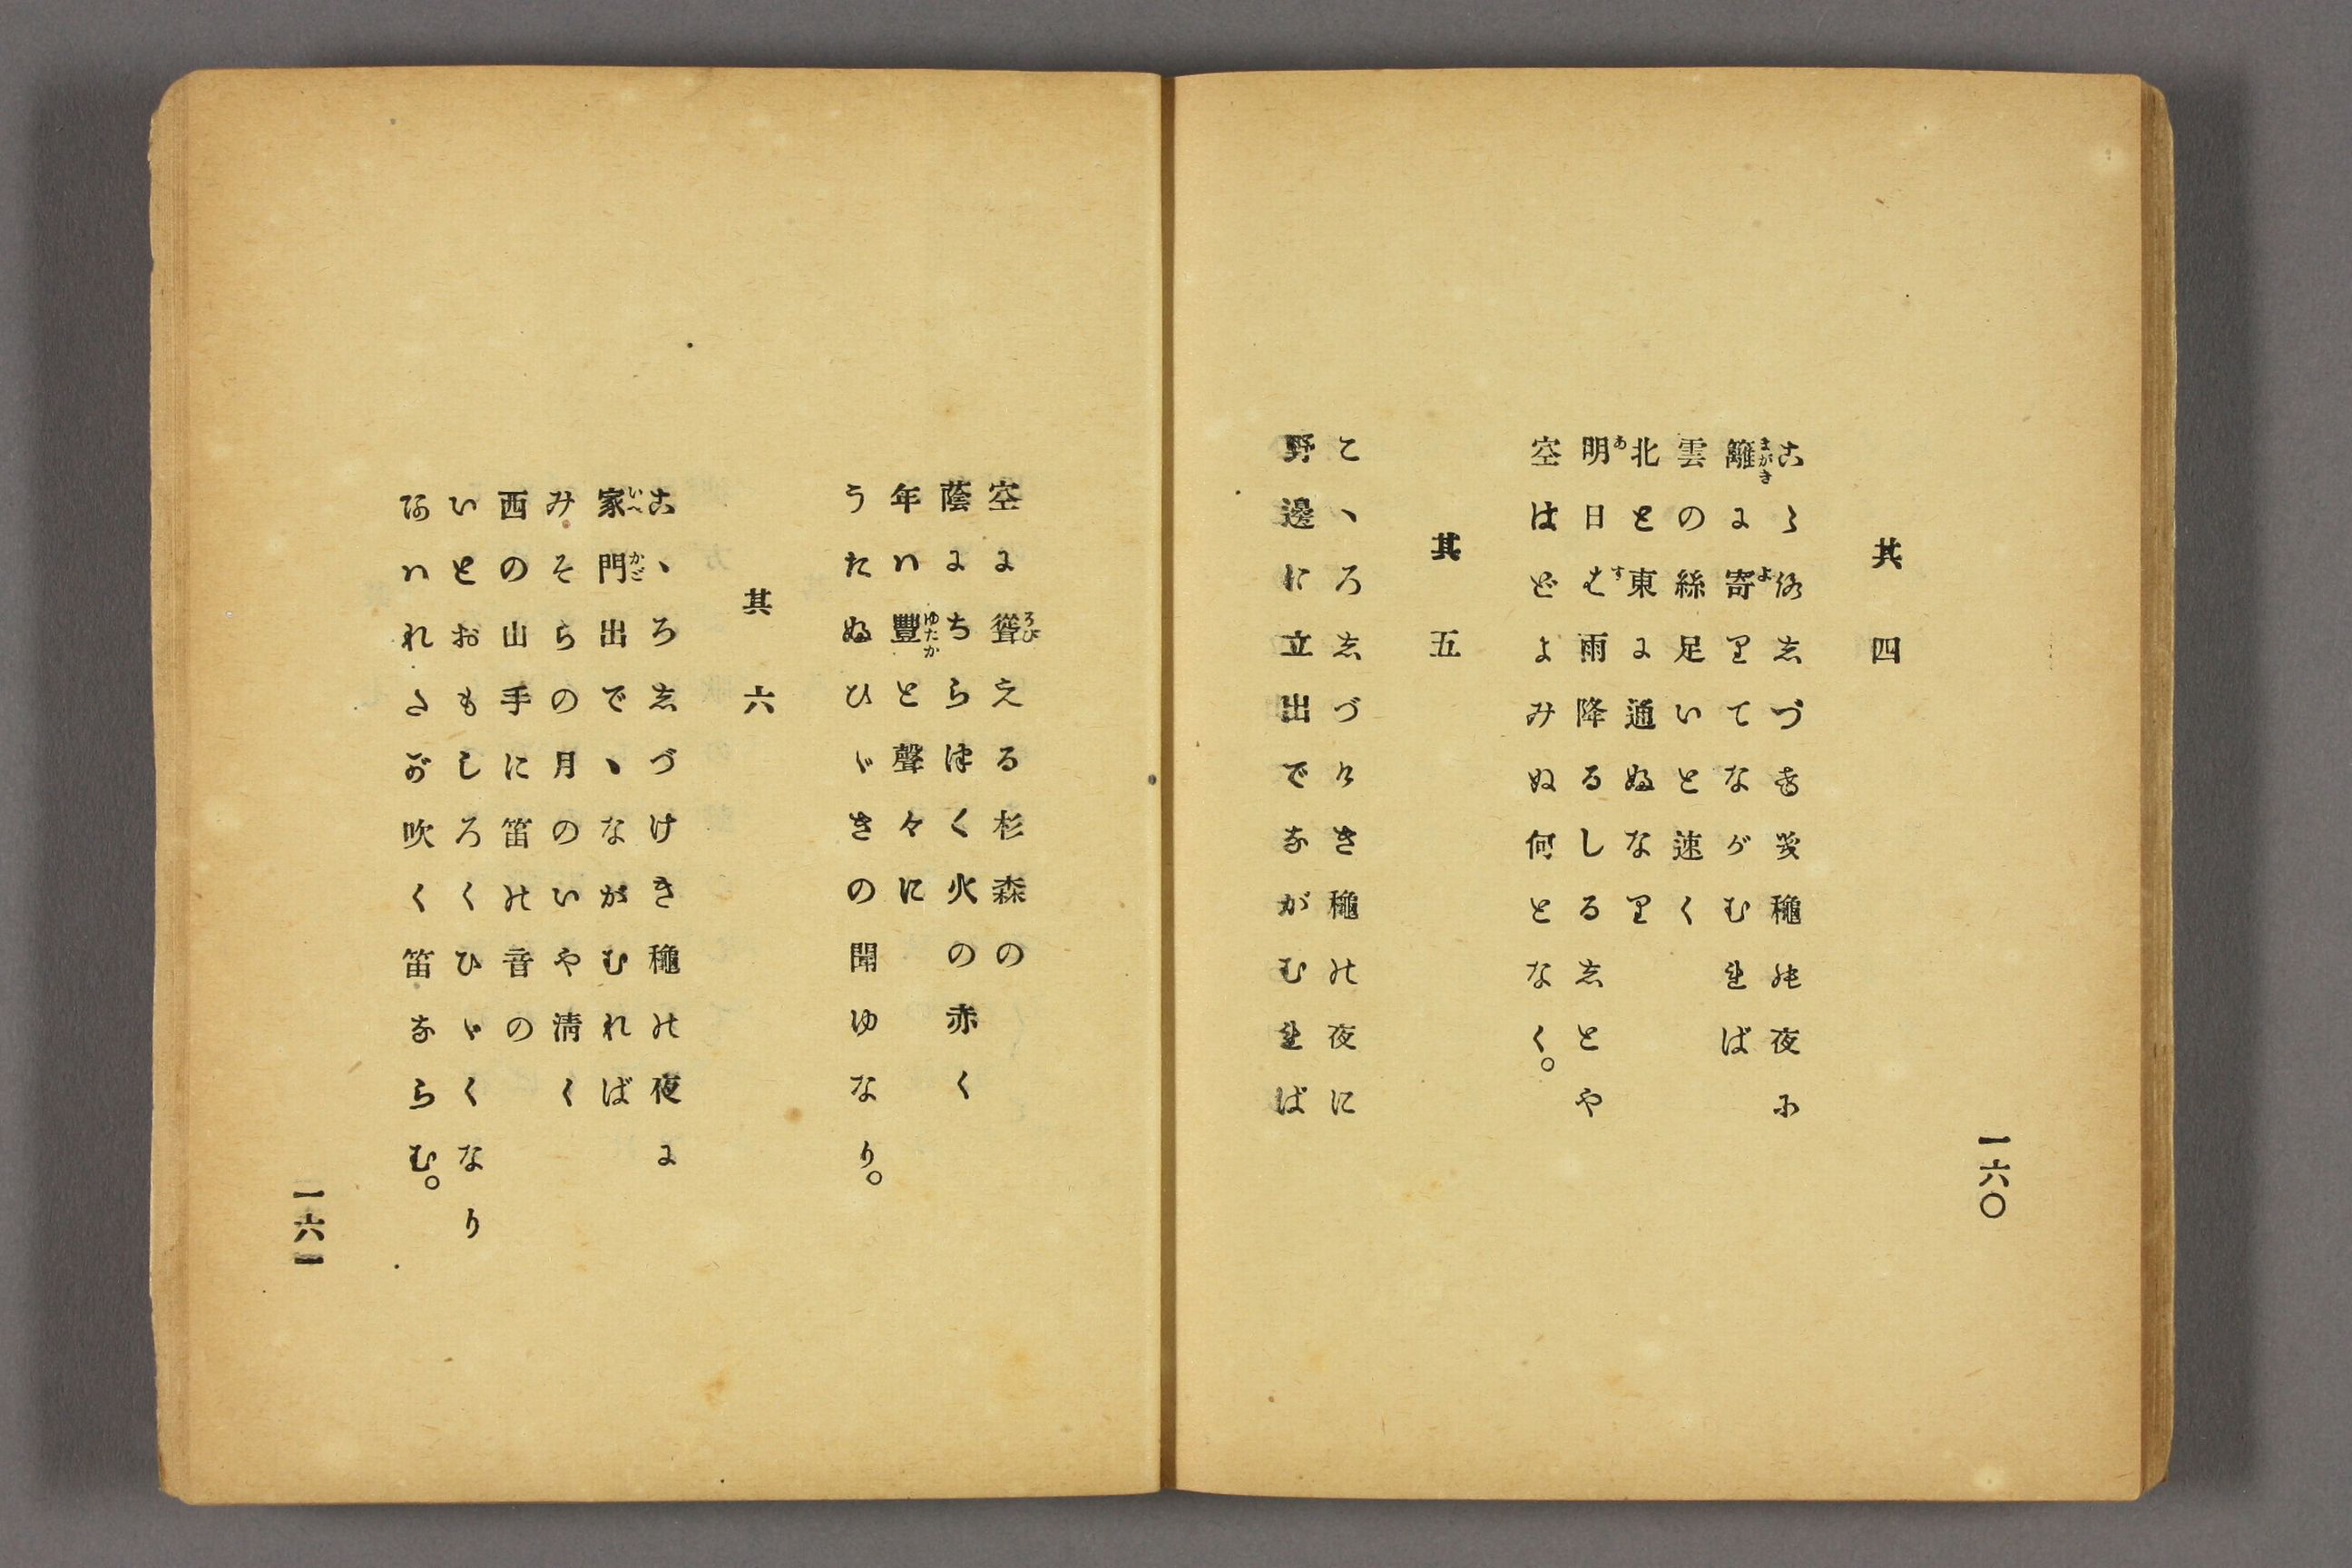 一六〇
其四
こゝろしづけき穐の夜に
籬に寄りてながむれば
雲の絲足いと速く
北と東に通ふなり
明日は雨降るしるしとや
空はどよみぬ何となく。
其五
こゝろしづけき穐の夜に
野邊に立出でながむれば
空に聳える杉森の
蔭にちらつく火の赤く
年は豐と聲々に
うたふひゞきの聞ゆなり。
其六
こゝろしづけき穐の夜に
家門出でゝながむれば
みそらの月のいや清く
西の山手に笛の音の
いとおもしろくひゞくなり
あはれたが吹く笛ならむ。
一六一